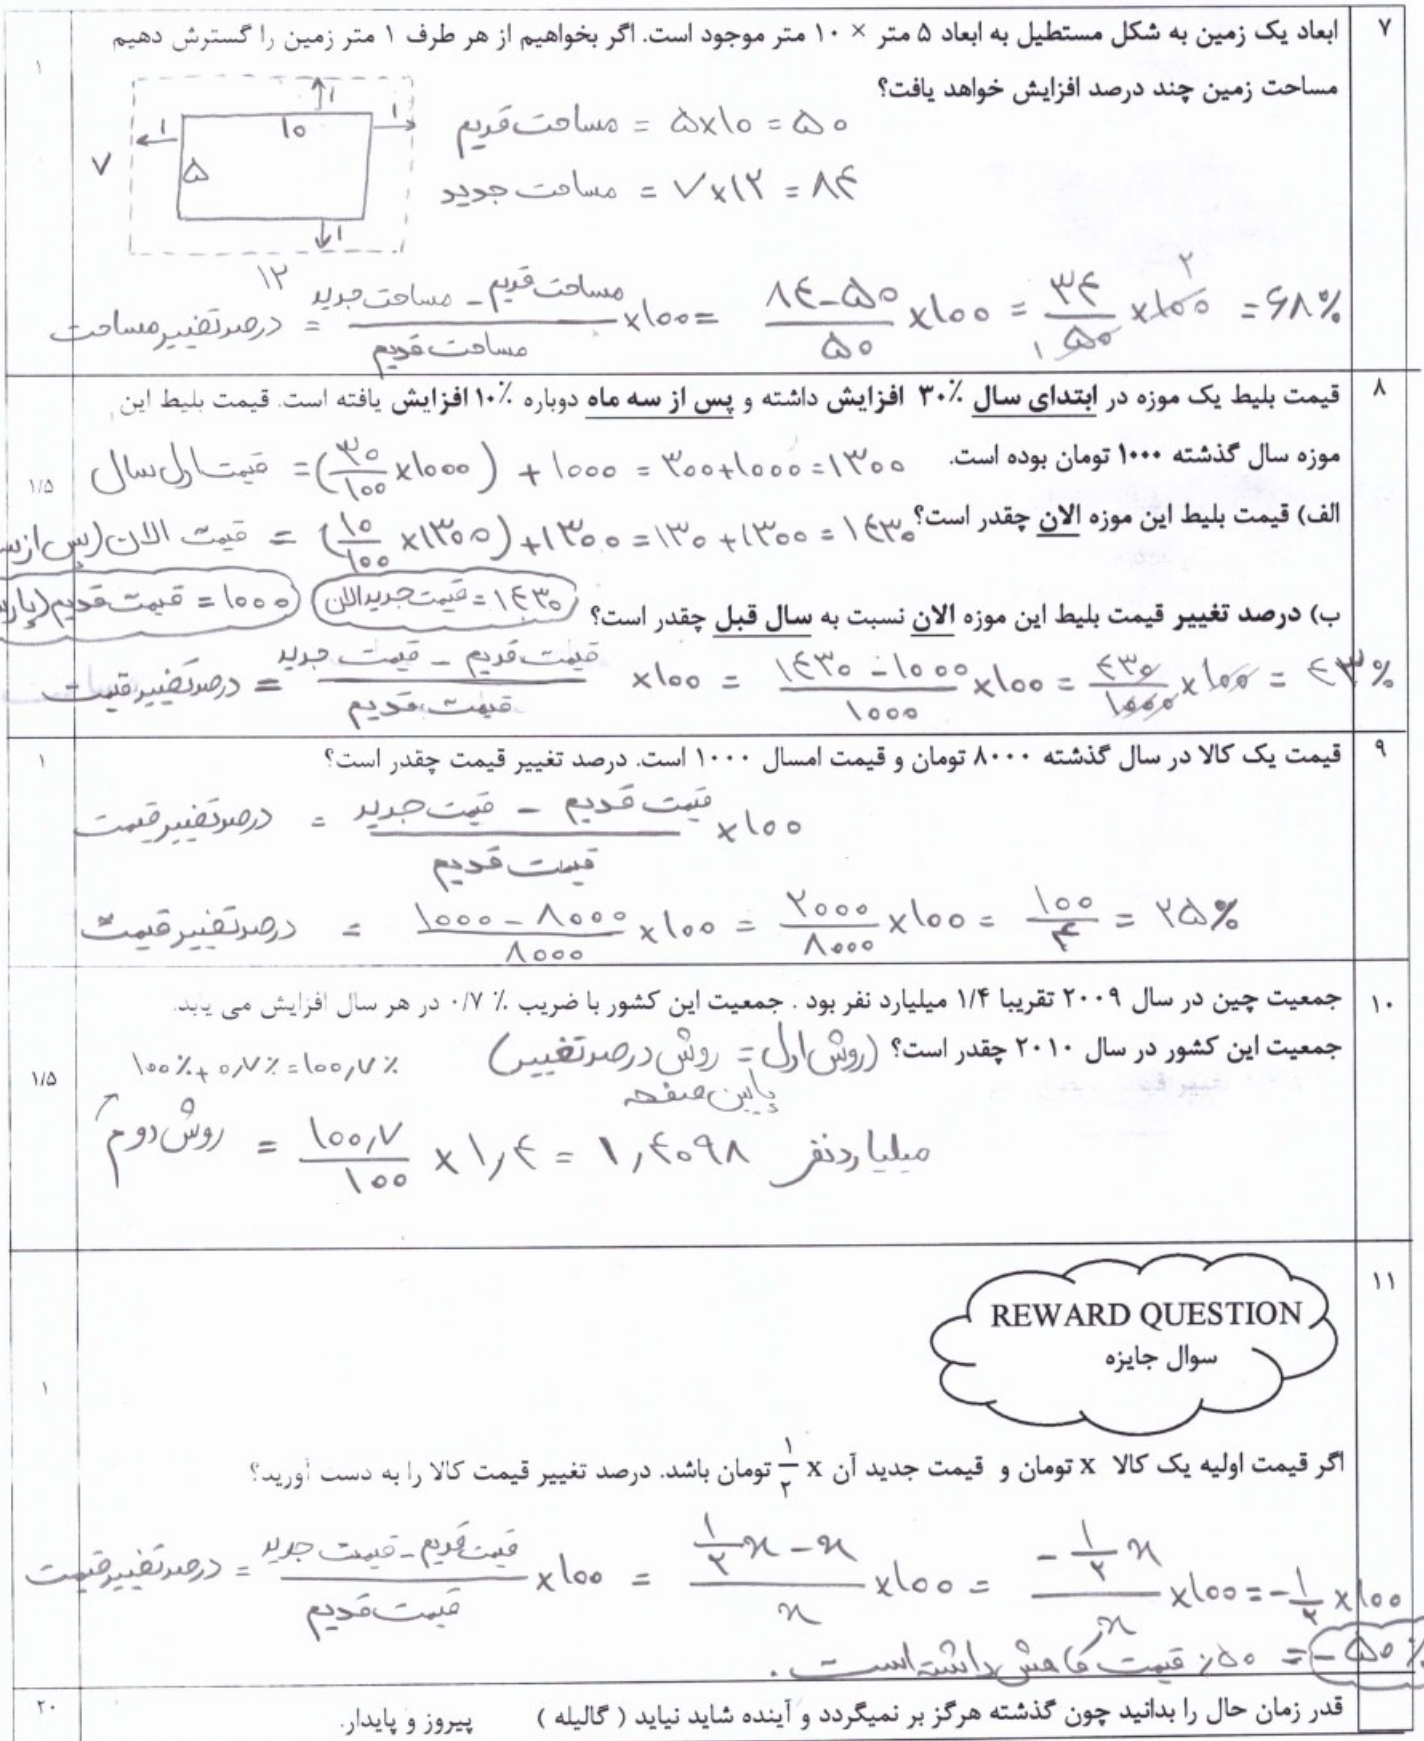 ۷
ابعاد یک زمین به شکل مستطیل به ابعاد ۵ متر × ۱۰ متر موجود است. اگر بخواهیم از هر طرف ۱ متر زمین را گسترش دهیم
۱
مساحت زمین چند درصد افزایش خواهد یافت؟
۱ ۱۰ ۱ ۱ ۵ ۷ ۱ ۱۲
مساحت قدیم = ۵×۱۰ = ۵۰
مساحت جدید = ۷×۱۲ = ۸۴
درصد تغییر مساحت = (مساحت جدید - مساحت قدیم)/مساحت قدیم ×۱۰۰ = (۸۴-۵۰)/۵۰ ×۱۰۰ = ۳۴/۵۰ ×۱۰۰ = ۶۸%
۲
۱
۸
قیمت بلیط یک موزه در ابتدای سال ۳۰٪ افزایش داشته و پس از سه ماه دوباره ۱۰٪ افزایش یافته است. قیمت بلیط این
موزه سال گذشته ۱۰۰۰ تومان بوده است.
قیمت اول سال = (۳۰/۱۰۰ ×۱۰۰۰) + ۱۰۰۰ = ۳۰۰+۱۰۰۰ = ۱۳۰۰
۱/۵
الف) قیمت بلیط این موزه الان چقدر است؟
قیمت الان (پس از = (۱۰/۱۰۰ ×۱۳۰۰)+۱۳۰۰ = ۱۳۰+۱۳۰۰ = ۱۴۳۰
ب) درصد تغییر قیمت بلیط این موزه الان نسبت به سال قبل چقدر است؟
۱۴۳۰ = قیمت جدید الان
۱۰۰۰ = قیمت قدیم
درصد تغییر قیمت = (قیمت جدید - قیمت قدیم)/قیمت قدیم ×۱۰۰ = (۱۴۳۰-۱۰۰۰)/۱۰۰۰ ×۱۰۰ = ۴۳۰/۱۰۰۰ ×۱۰۰ = ۴۳%
۹
قیمت یک کالا در سال گذشته ۸۰۰۰ تومان و قیمت امسال ۱۰۰۰۰ است. درصد تغییر قیمت چقدر است؟
۱
درصد تغییر قیمت = (قیمت جدید - قیمت قدیم)/قیمت قدیم ×۱۰۰
درصد تغییر قیمت = (۱۰۰۰۰-۸۰۰۰)/۸۰۰۰ ×۱۰۰ = ۲۰۰۰/۸۰۰۰ ×۱۰۰ = ۱۰۰/۴ = ۲۵%
۱۰
جمعیت چین در سال ۲۰۰۹ تقریبا ۱/۴ میلیارد نفر بود . جمعیت این کشور با ضریب ٪ ۰/۷ در هر سال افزایش می یابد.
جمعیت این کشور در سال ۲۰۱۰ چقدر است؟ (روش اول = روش درصد تغییر)
پایین صفحه
۱۰۰% + ۰٫۷% = ۱۰۰٫۷%
۱/۵
روش دوم = ۱۰۰٫۷/۱۰۰ × ۱٫۴ = ۱٫۴۰۹۸ میلیارد نفر
۱۱
REWARD QUESTION
سوال جایزه
۱
اگر قیمت اولیه یک کالا x تومان و قیمت جدید آن ۱/۲ x تومان باشد. درصد تغییر قیمت کالا را به دست آورید؟
درصد تغییر قیمت = (قیمت جدید - قیمت قدیم)/قیمت قدیم ×۱۰۰ = (۱/۲ x - x)/x ×۱۰۰ = (-۱/۲ x)/x ×۱۰۰ = -۱/۲ ×۱۰۰
= -۵۰% = ۵۰٪ قیمت کاهش داشته است .
قدر زمان حال را بدانید چون گذشته هرگز بر نمیگردد و آینده شاید نیاید ( گالیله ) پیروز و پایدار.
۲۰